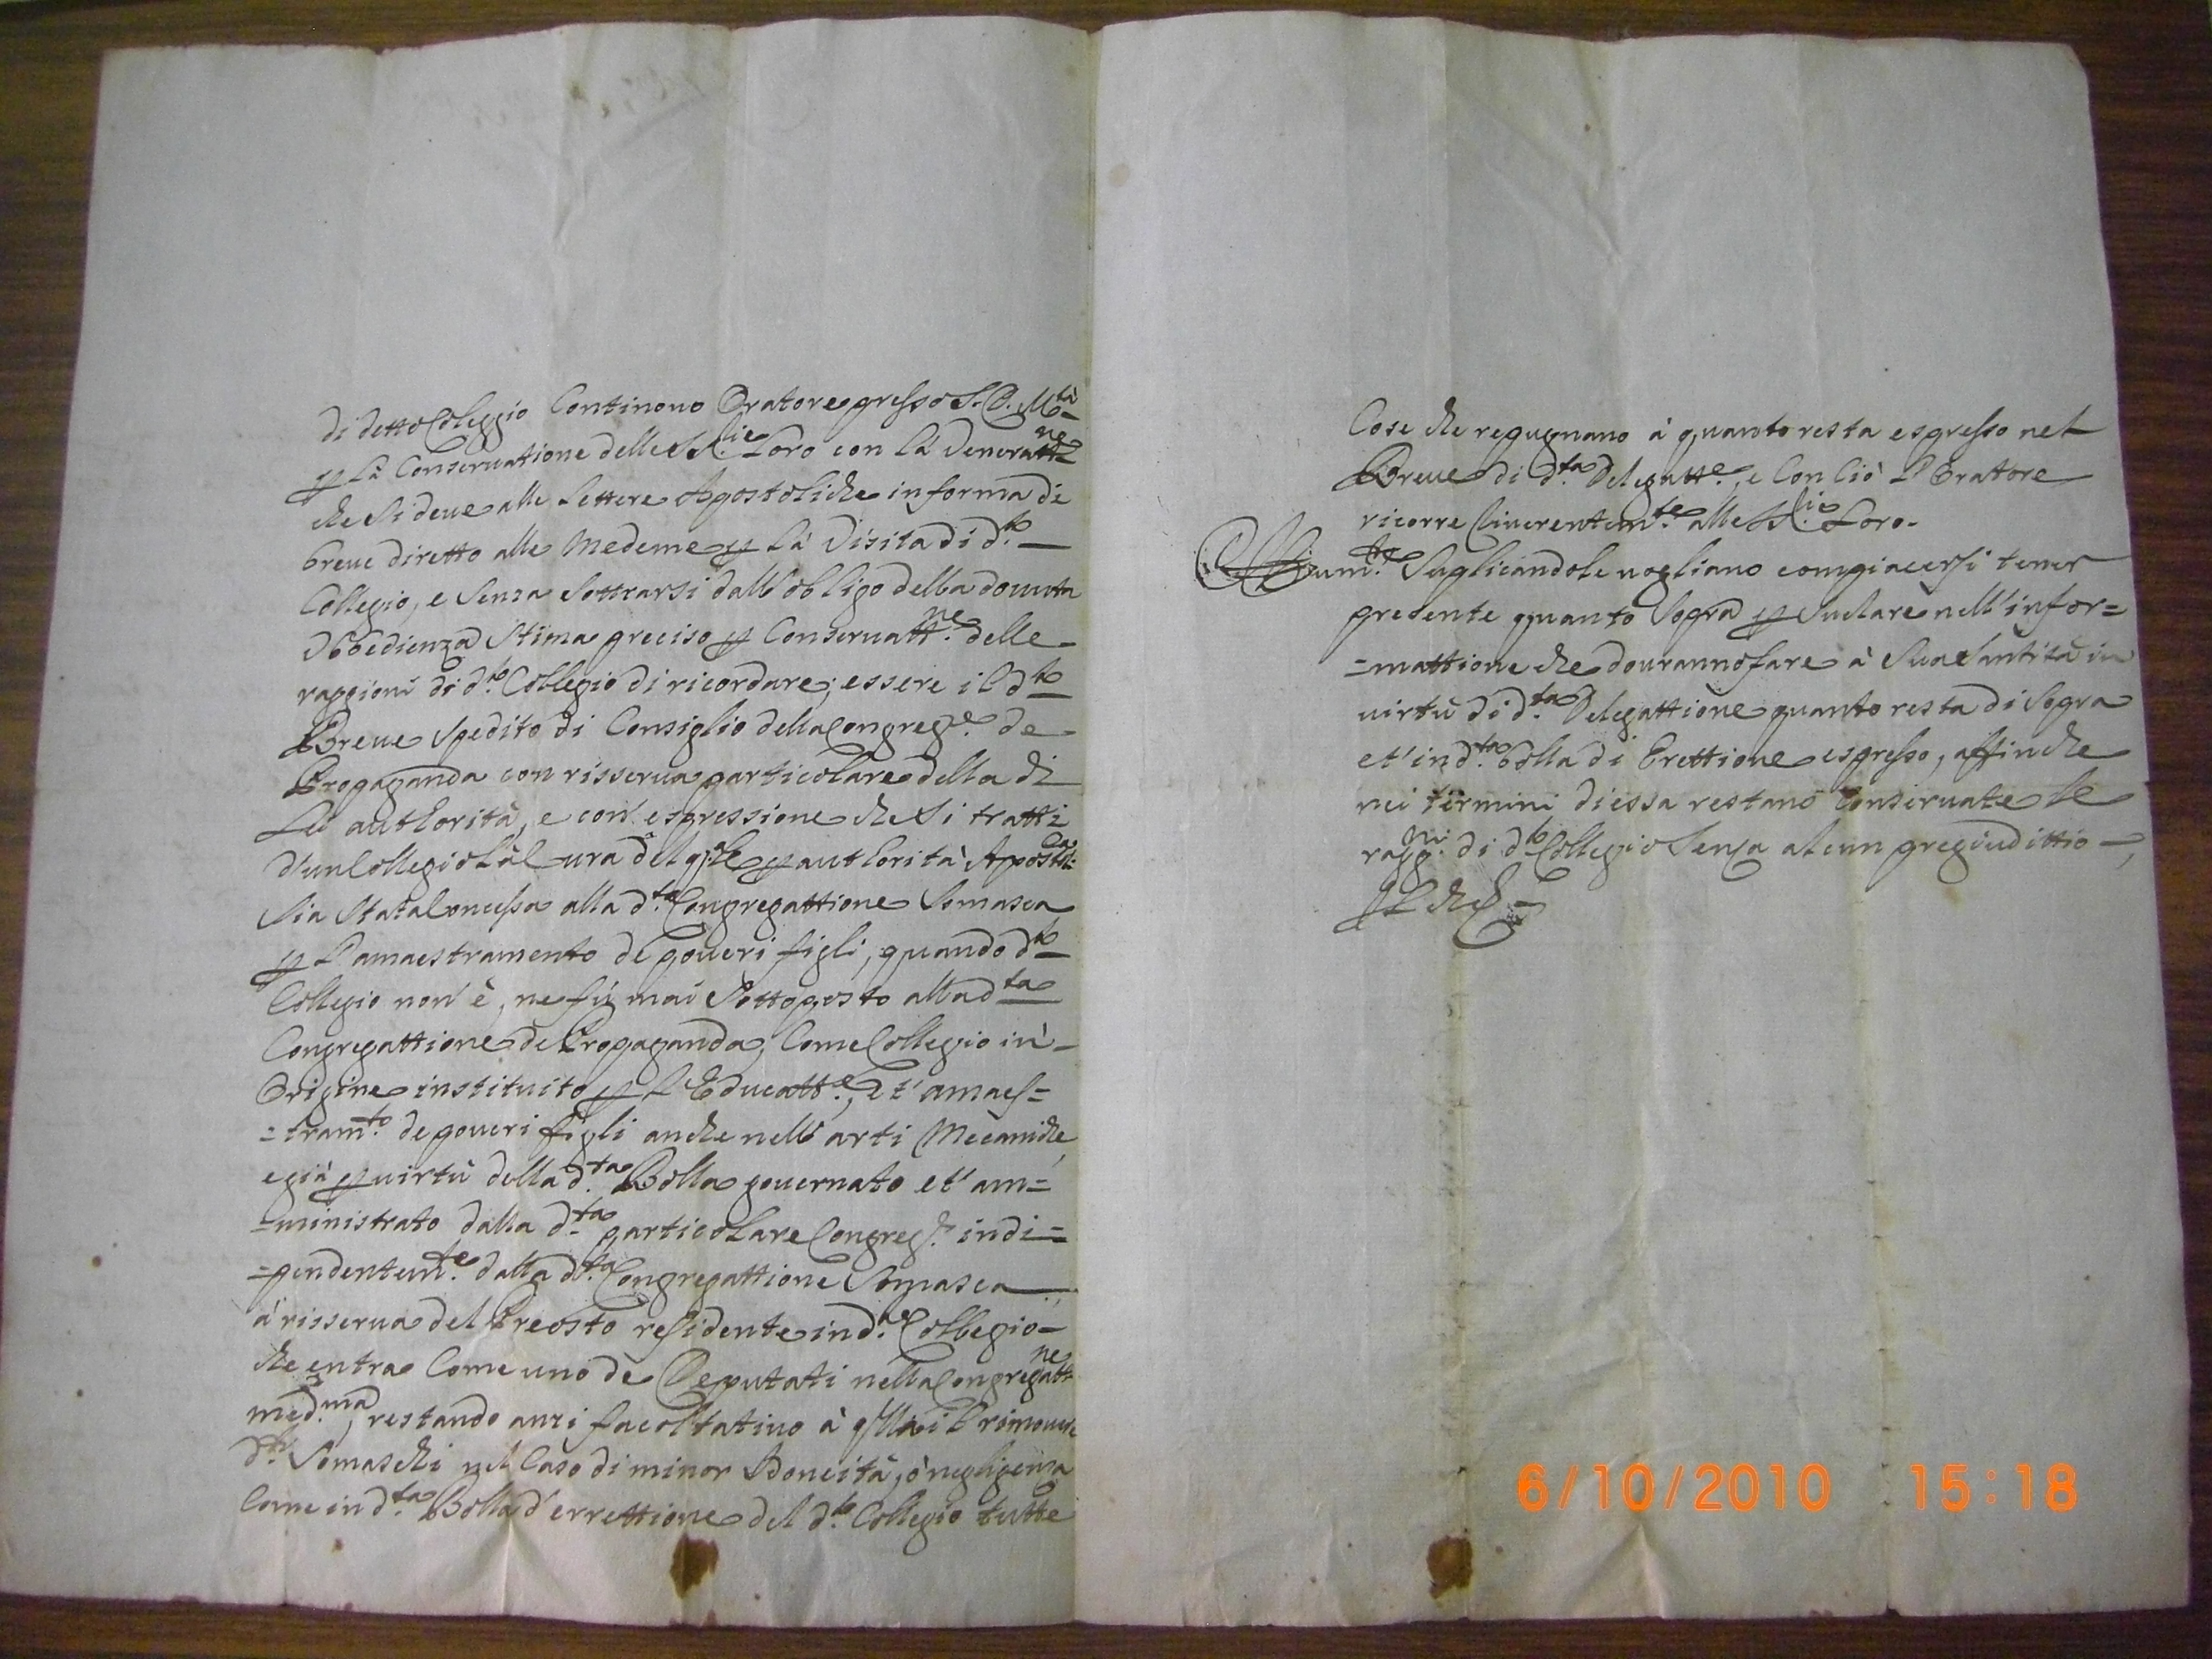 di detto Coleggio Continouo Oratore presso S. D. M.tà
p la Conseruatione delle SS.rie Loro con la Veneratt.ne
che si deue alle Lettere Apostoliche in forma di
breue diretto alle Medeme p la Visita di d.to
Collegio, e senza sottrarsi dall'obligo della douuta
Obbedienza stima preciso p Conseruatt.ne delle
raggioni di d.to Collegio di ricordare, essere il d.to
Breue spedito di Consiglio della Congreg.e de
Propaganda con risserua particolare della di
Lei authorità, e con espressione che si tratti
d'un Collegio la Cura del q.le p authorità Apostol.ca
sia stata Concessa alla d.ta Congregattione Somasca
p l'amaestramento de poueri figli, quando d.to
Collegio non è, ne fù mai sottoposto alla d.ta
Congregattione de Propaganda, Come Collegio in
Origine instituito p l'Educatt.e, et' amaes=
=tram.to de poueri figli anche nell'arti Mecaniche
e già p uirtù della d.ta Bolla gouernato et' am=
=ministrato dalla d.ta particolare Congreg.e indi=
=pendentem.te dalla d.ta Congregattione Somasca
à risserua del Preosto residente in d.to Collegio
che entra Come uno de Deputati nella Congregatt.ne
med.ma, restando anzi facoltatiuo à q.lla il rimouere
d.ti Somaschi nel Caso di minor Idoneità, ò negligenza
Come in d.ta Bolla d'errettione del d.to Collegio tutte
Cose che repugnano à quanto resta espresso nel
Breue di d.ta Delegatt.e, e Con Ciò l'Oratore
ricorre riuerentem.te alle SS.rie Loro.
Supplicandole uogliano compiacersi tener
presente quanto sopra p suelare nell'infor=
=mattione che douranno fare à Sua Santità in
uirtù di d.ta Delegattione quanto resta di sopra
et' in d.ta Bolla di Erettione espresso, affinche
nei termini di essa restano Conseruate le
ragg.ni di d.to Collegio senza alcun pregiudittio,
Il che
6/10/2010 15:18